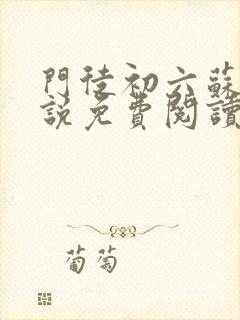 門徒初六蘇
說免費閱讀
葡萄